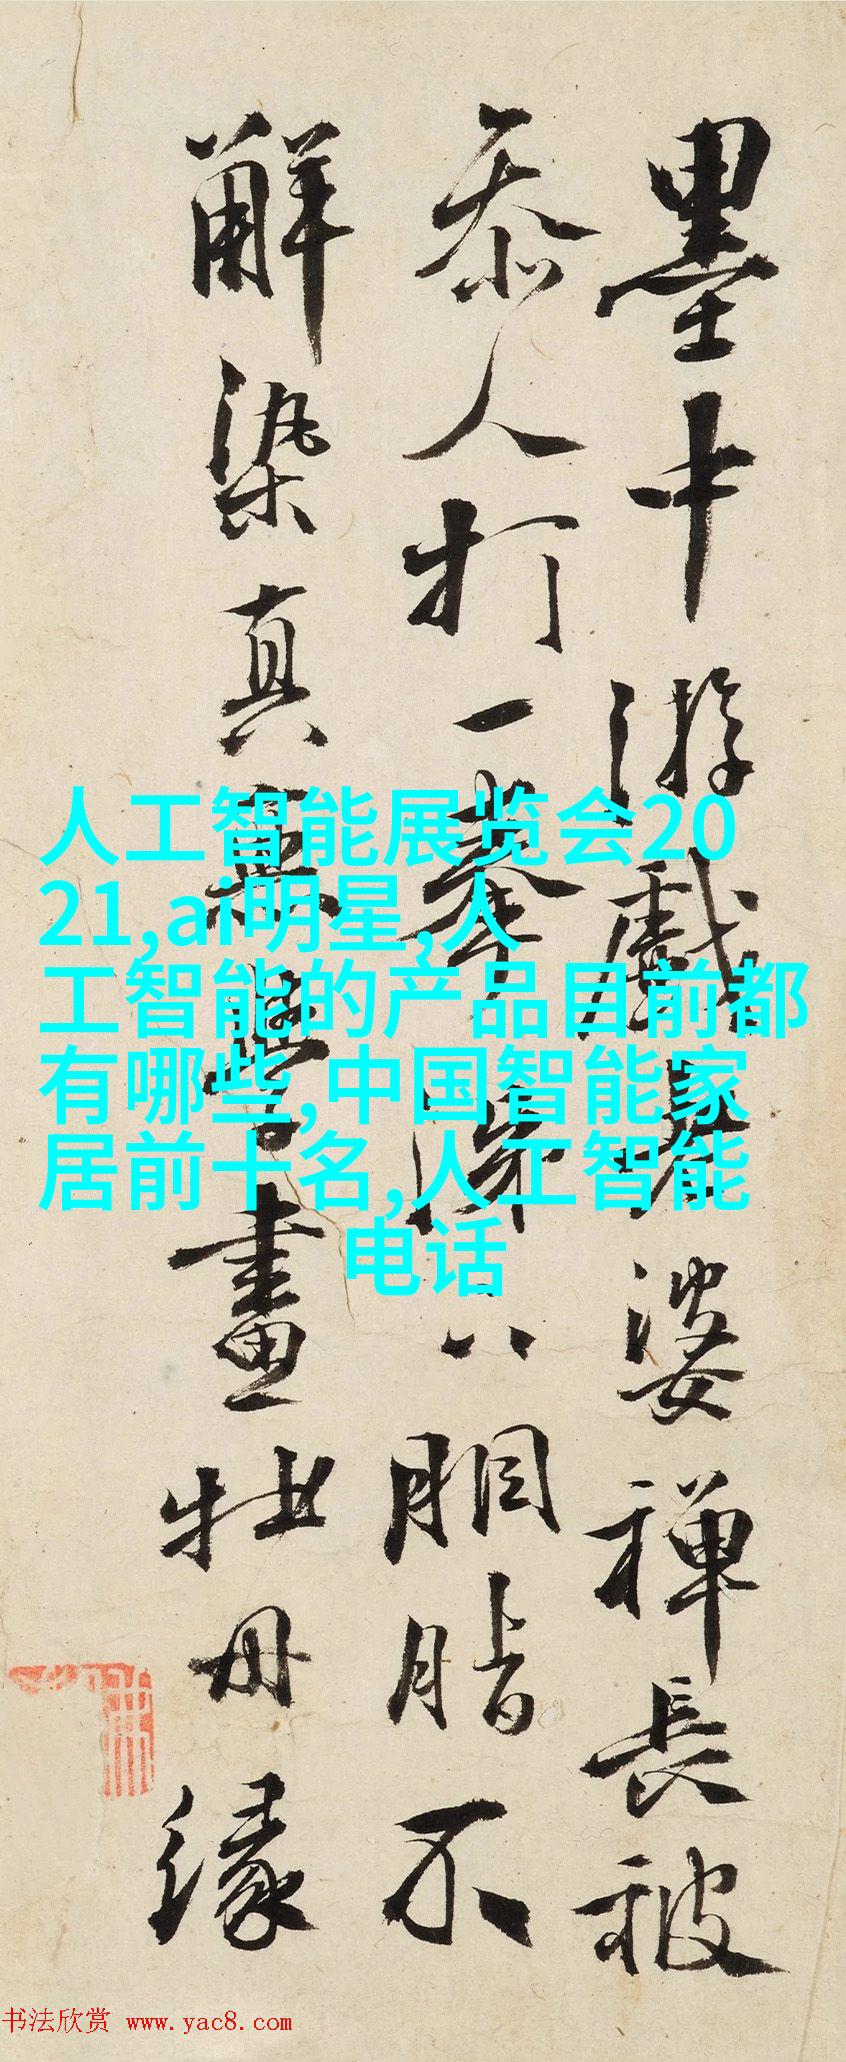 墨中游戲老婆禪長被
叅人打一拳涕下胭脂不
解染真無學畫牡丹緣
人工智能展览会20
21,ai明星,人
工智能的产品目前都
有哪些,中国智能家
居前十名,人工智能
电话
书法欣赏 www.yac8.com